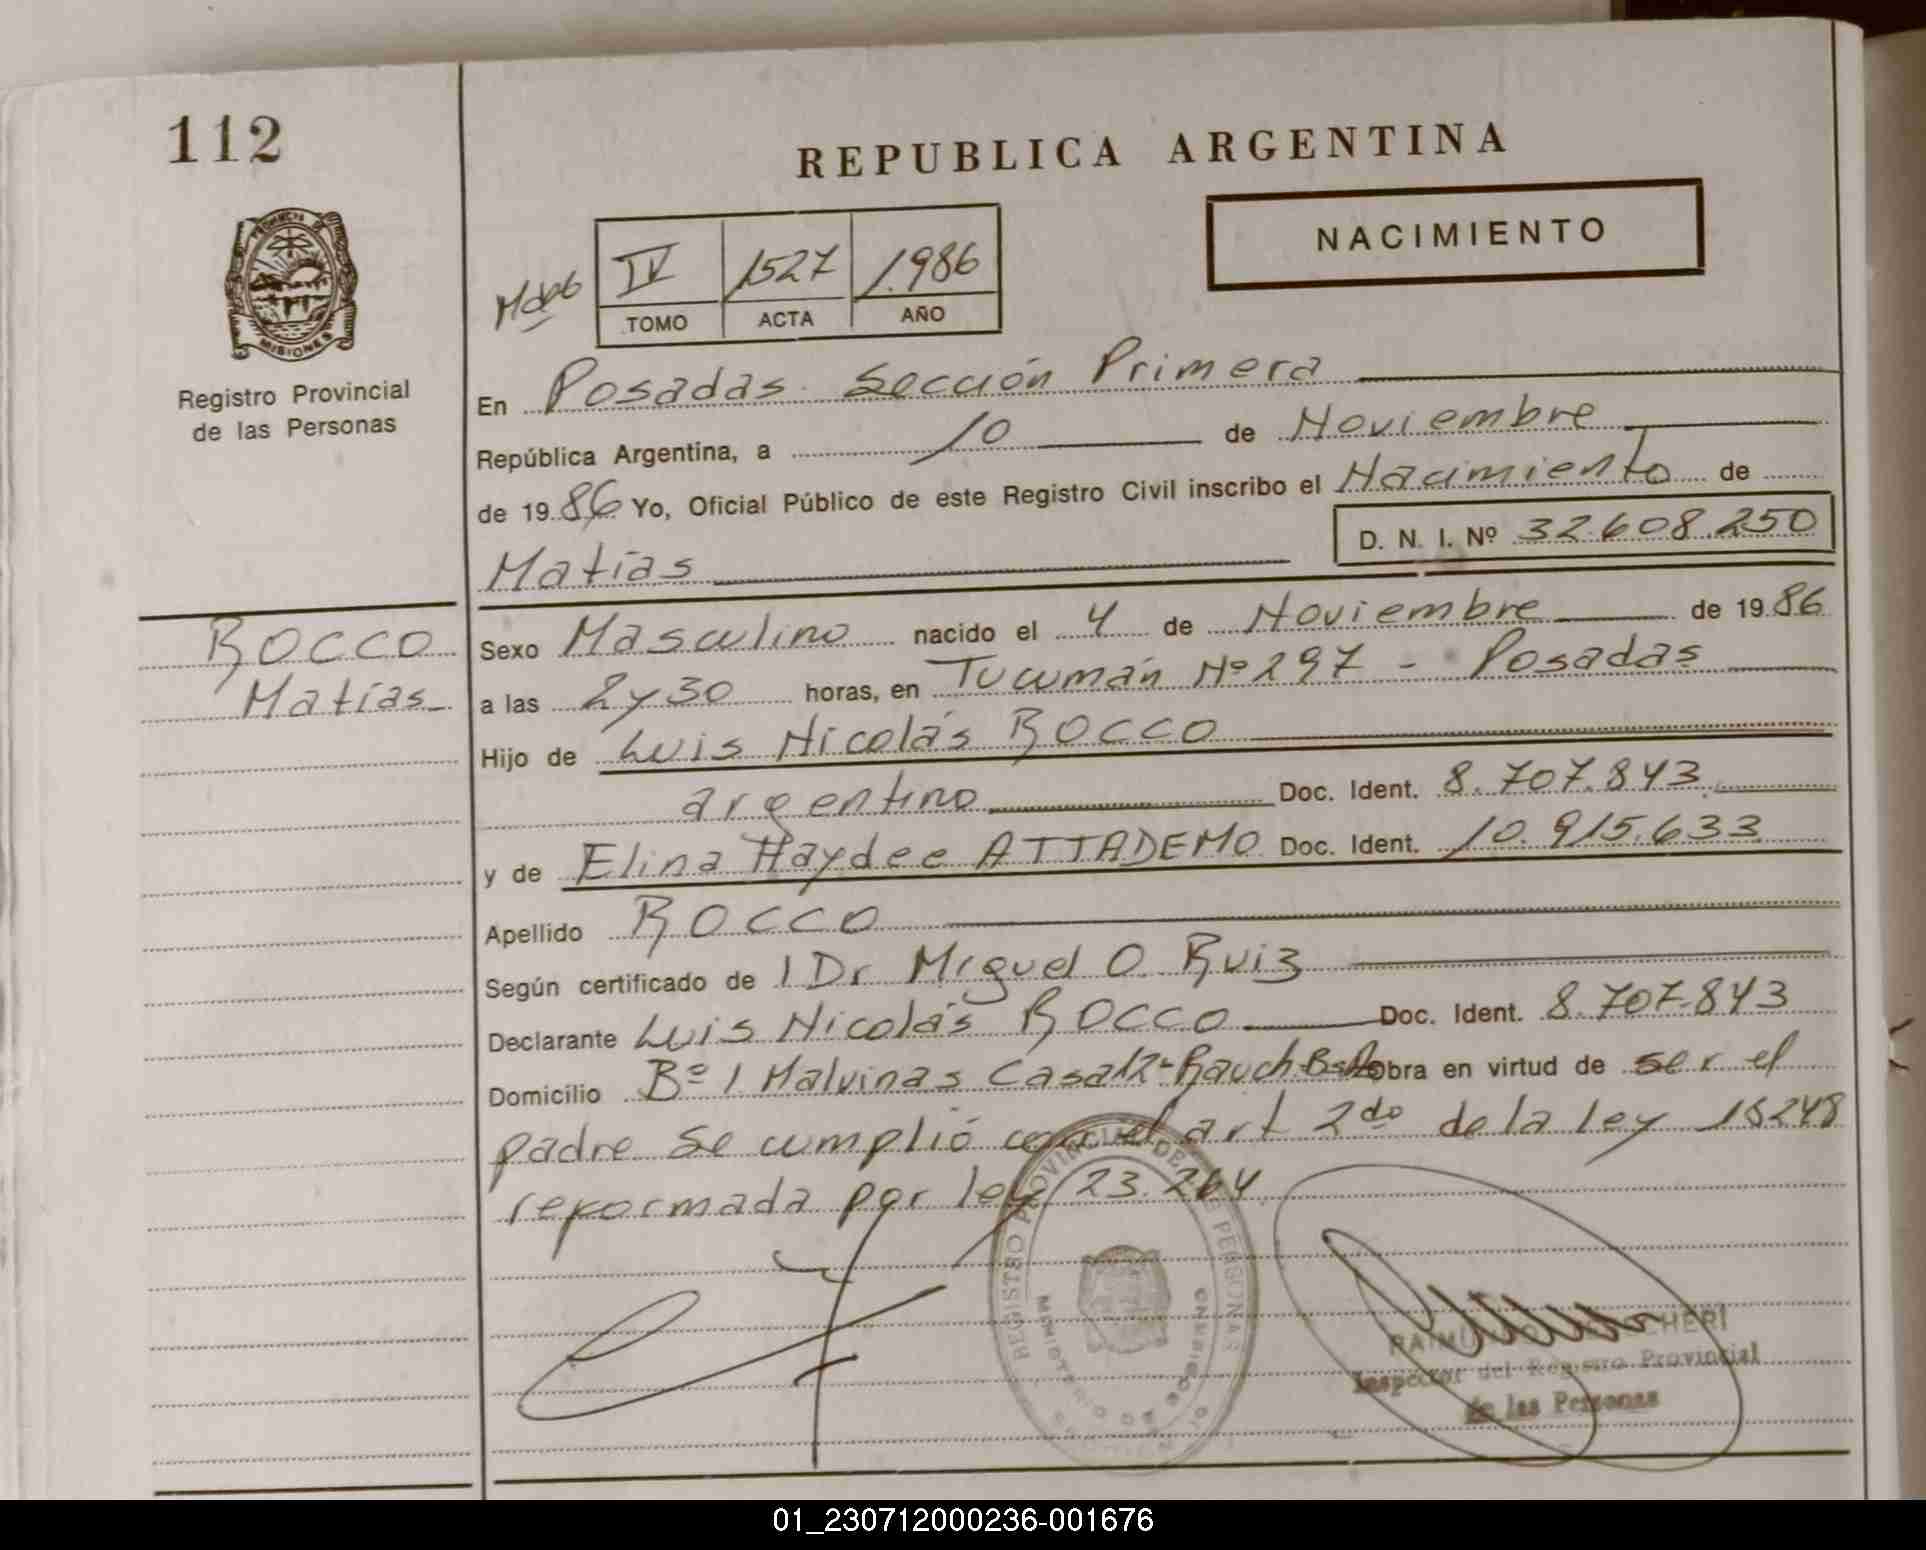 112
REPUBLICA ARGENTINA
NACIMIENTO
IV 1527 1.986
TOMO ACTA AÑO
PROVINCIA DE
MISIONES
Registro Provincial
de las Personas
En Posadas Sección Primera
República Argentina, a 10 de Noviembre
de 1986 Yo, Oficial Público de este Registro Civil inscribo el Nacimiento de
D. N. I. Nº 32.608.250
Matías
ROCCO
Matías
Sexo Masculino nacido el 4 de Noviembre de 1986
a las 2 y 30 horas, en Tucumán Nº 297 - Posadas
Hijo de Luis Nicolás ROCCO
argentino Doc. Ident. 8.707.843
y de Elina Haydee ATTADEMO Doc. Ident. 10.915.633
Apellido ROCCO
Según certificado de l Dr Miguel O. Ruiz
Declarante Luis Nicolás ROCCO Doc. Ident. 8.707.843
Domicilio Bº 1 Malvinas Casa 12 - Rauch - Bs As Obra en virtud de ser el
padre Se cumplió con el art 2do de la ley 18248
reformada por ley 23.264
REGISTRO PROVINCIAL DE LAS PERSONAS
MINISTERIO DE
Inspector del Registro Provincial
de las Personas
01_230712000236-001676